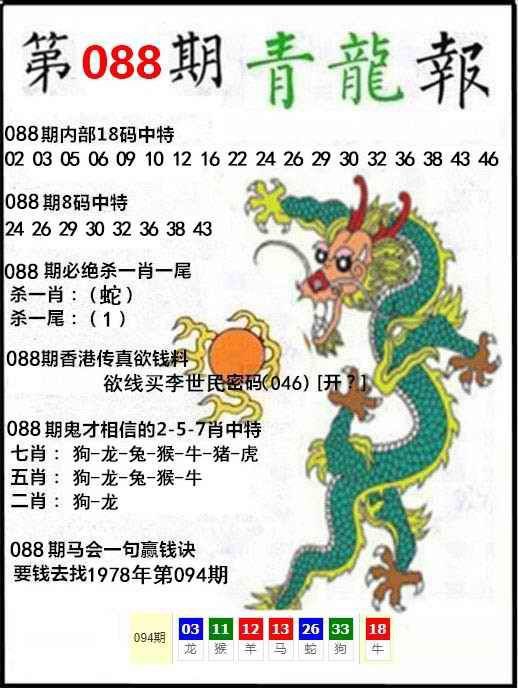 第088期青龍報
088期内部18码中特
02 03 05 06 09 10 12 16 22 24 26 29 30 32 36 38 43 46
088 期8码中特
24 26 29 30 32 36 38 43
088 期必绝杀一肖一尾
杀一肖：（蛇）
杀一尾：（1）
088期香港传真欲钱料
欲线买李世民密码(046) [开？]
088 期鬼才相信的2-5-7肖中特
七肖： 狗-龙-兔-猴-牛-猪-虎
五肖： 狗-龙-兔-猴-牛
二肖： 狗-龙
088 期马会一句赢钱诀
要钱去找1978年第094期
094期 03 11 12 13 26 33 18
龙 猴 羊 马 蛇 狗 牛